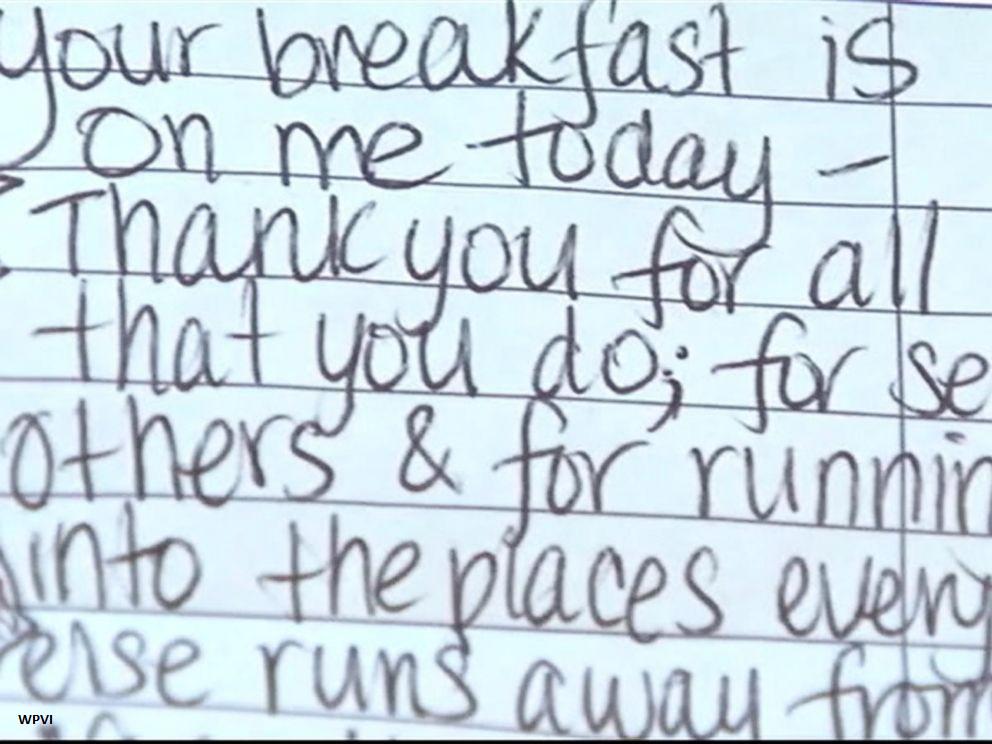 your breakfast is
on me today -
Thank you for all
that you do; for se
others & for runnin
into the places every
else runs away from
WPVI